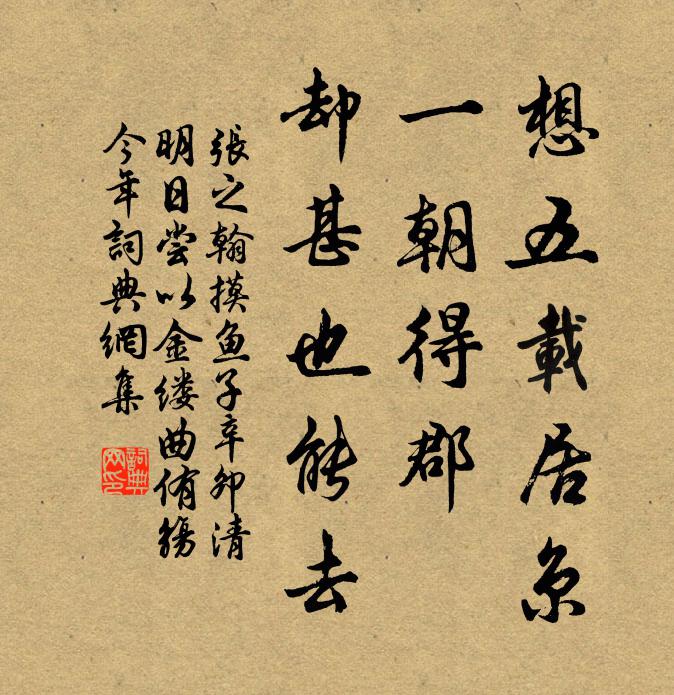 想五載居京
一朝得郡
却甚也能去
張之翰摸鱼子辛卯清
明日尝以金缕曲侑觞
今年詞典網集
詞典网印